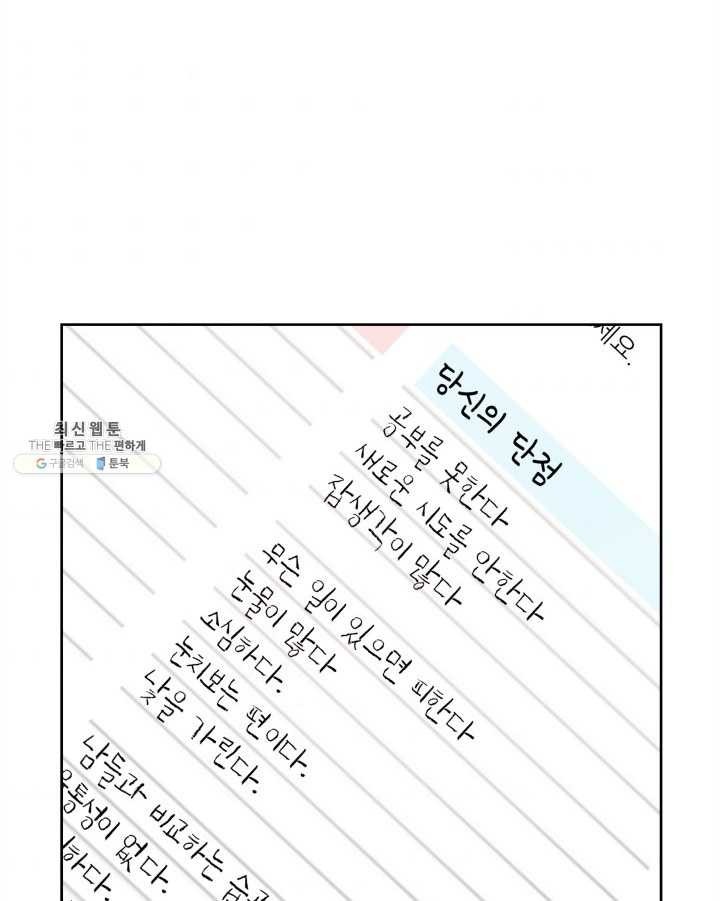 세요.
당신의 단점
공부를 못한다
새로운 시도를 안한다
잡생각이 많다
무슨 일이 있으면 피한다
눈물이 많다
소심하다.
눈치보는 편이다.
낯을 가린다.
남들과 비교하는
융통성이 없다.
하다.
최신웹툰
THE 빠르고 THE 편하게
구글검색 툰북